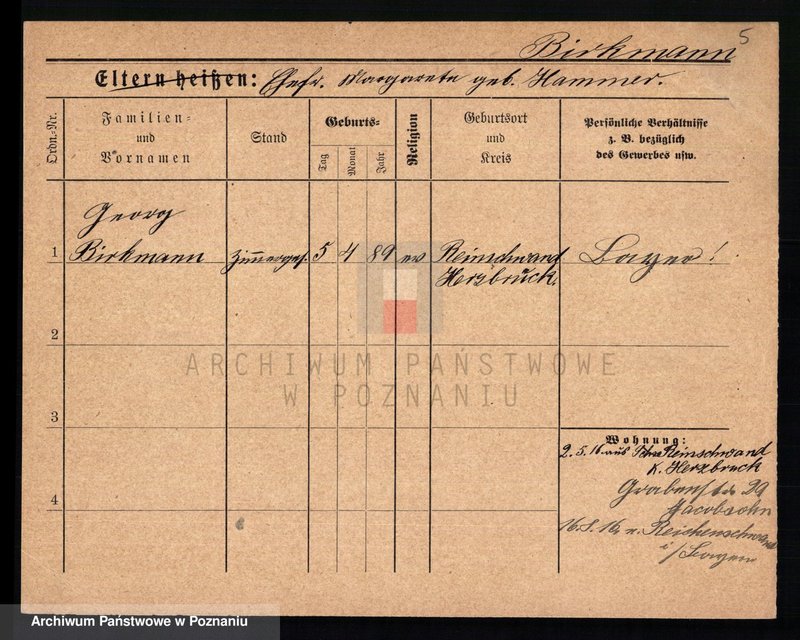 5
Birkmann
Eltern heißen: Ehefr. Margarete geb. Hammer.
Ordn.-Nr.
Familien- und Vornamen
Stand
Geburts-
Tag
Monat
Jahr
Religion
Geburtsort und Kreis
Persönliche Verhältnisse z. B. bezüglich des Gewerbes usw.
Georg
1 Birkmann Zimmerges. 5 4 89 ev Reinschwand Bayer!
Herzbruck.
2
ARCHIWUM PAŃSTWOWE
W POZNANIU
3
Wohnung:
2.5.16 aus Reinschwand
K. Herzbruck
4
Grabenstr 29
Jacobsohn
16. 16 n. Reichenschwand
i/Bayern
Archiwum Państwowe w Poznaniu